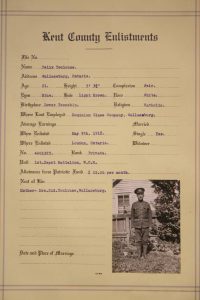 Kent County Enlistments
File No.
Name Felix
Address Wallaceburg, Ontario.
Age 21. Height 5' Complexion Fair.
Eyes Blue. Hair Light Brown. Race White.
Birthplace Dover Township. Religion Catholic.
Where Last Employed Dominion Glass Company, Wallaceburg.
Average Earnings Married
Date Enlisted May 9th, 1918. Single Yes.
Where Enlisted London, Ontario. Widower
No. Rank Private.
Unit 1st. Depot Battalion, W.O.R.
Allowance from Patriotic Fund $ per month.
Next of Kin:
Mother- Mrs. Wallaceburg.
Date and Place of Marriage